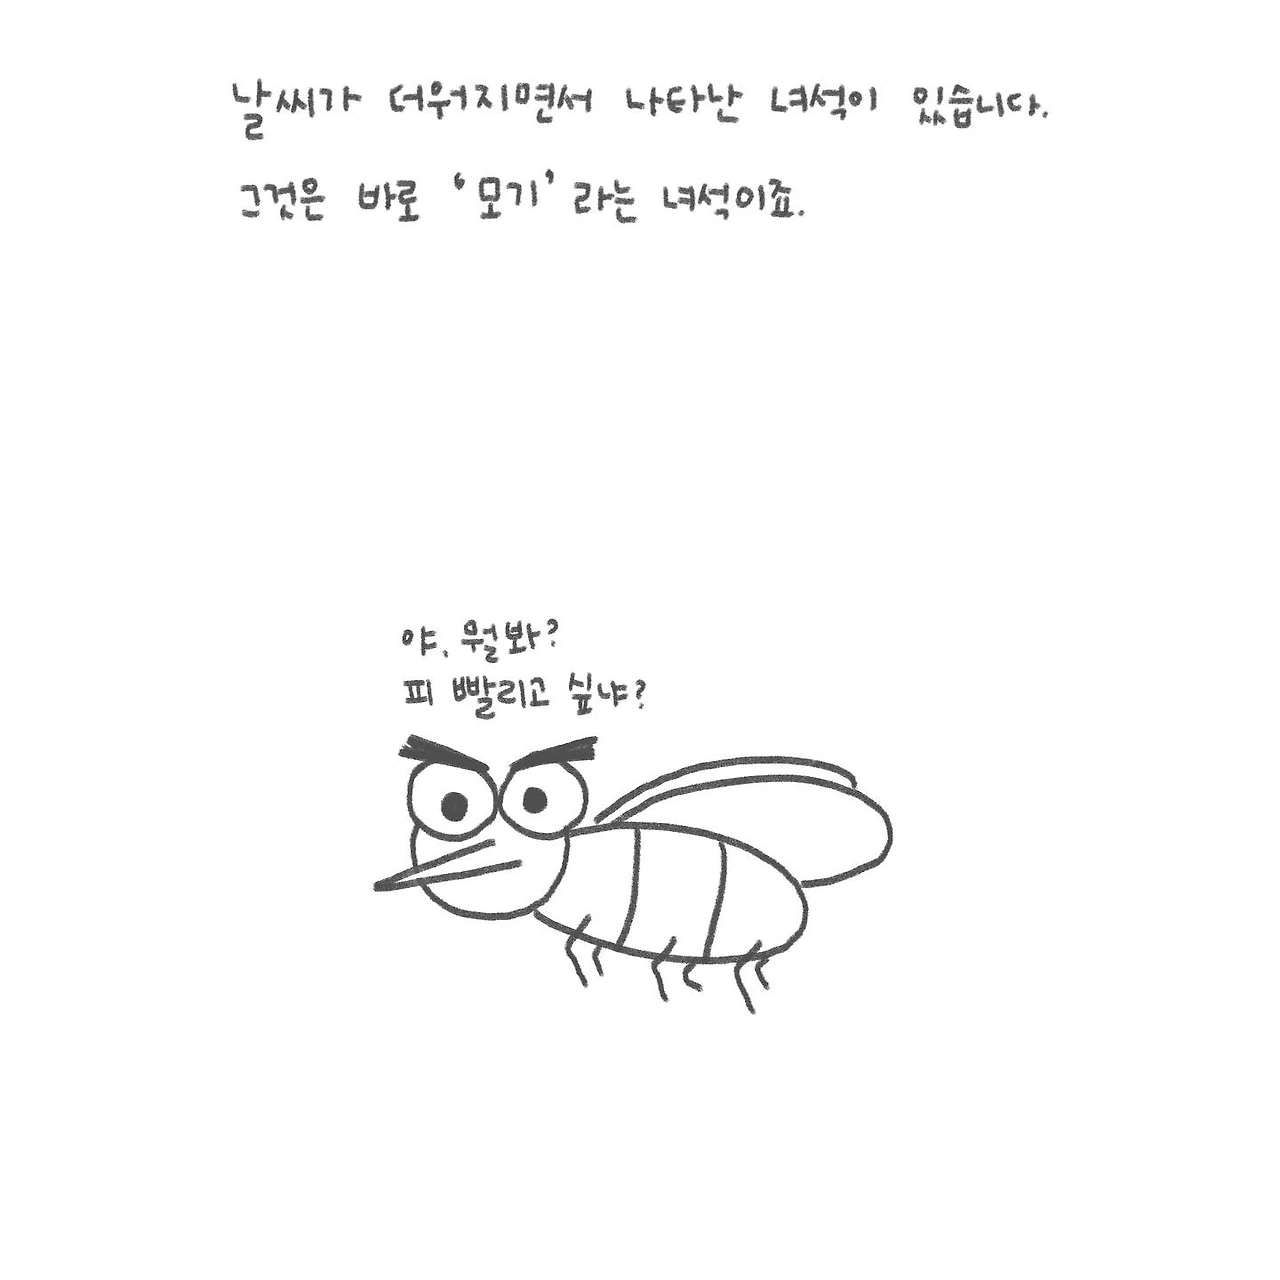 날씨가 더워지면서 나타난 녀석이 있습니다.
그것은 바로 '모기' 라는 녀석이죠.
야, 뭘봐?
피 빨리고 싶냐?